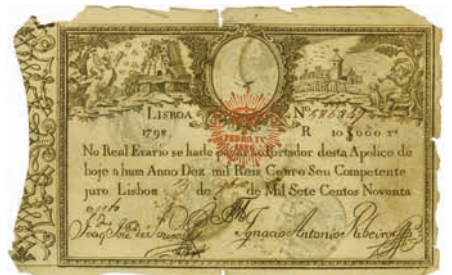 LISBOA Nº
1798 R 10$000 rs
PEDRO IV
1826
No Real Erario se hade ao Portador desta Apolice de
hoje a hum Anno Dez mil Reis Com o Seu Competente
juro Lisboa de de Mil Sete Centos Noventa
e oyto
Ignacio Antonio Ribeiro